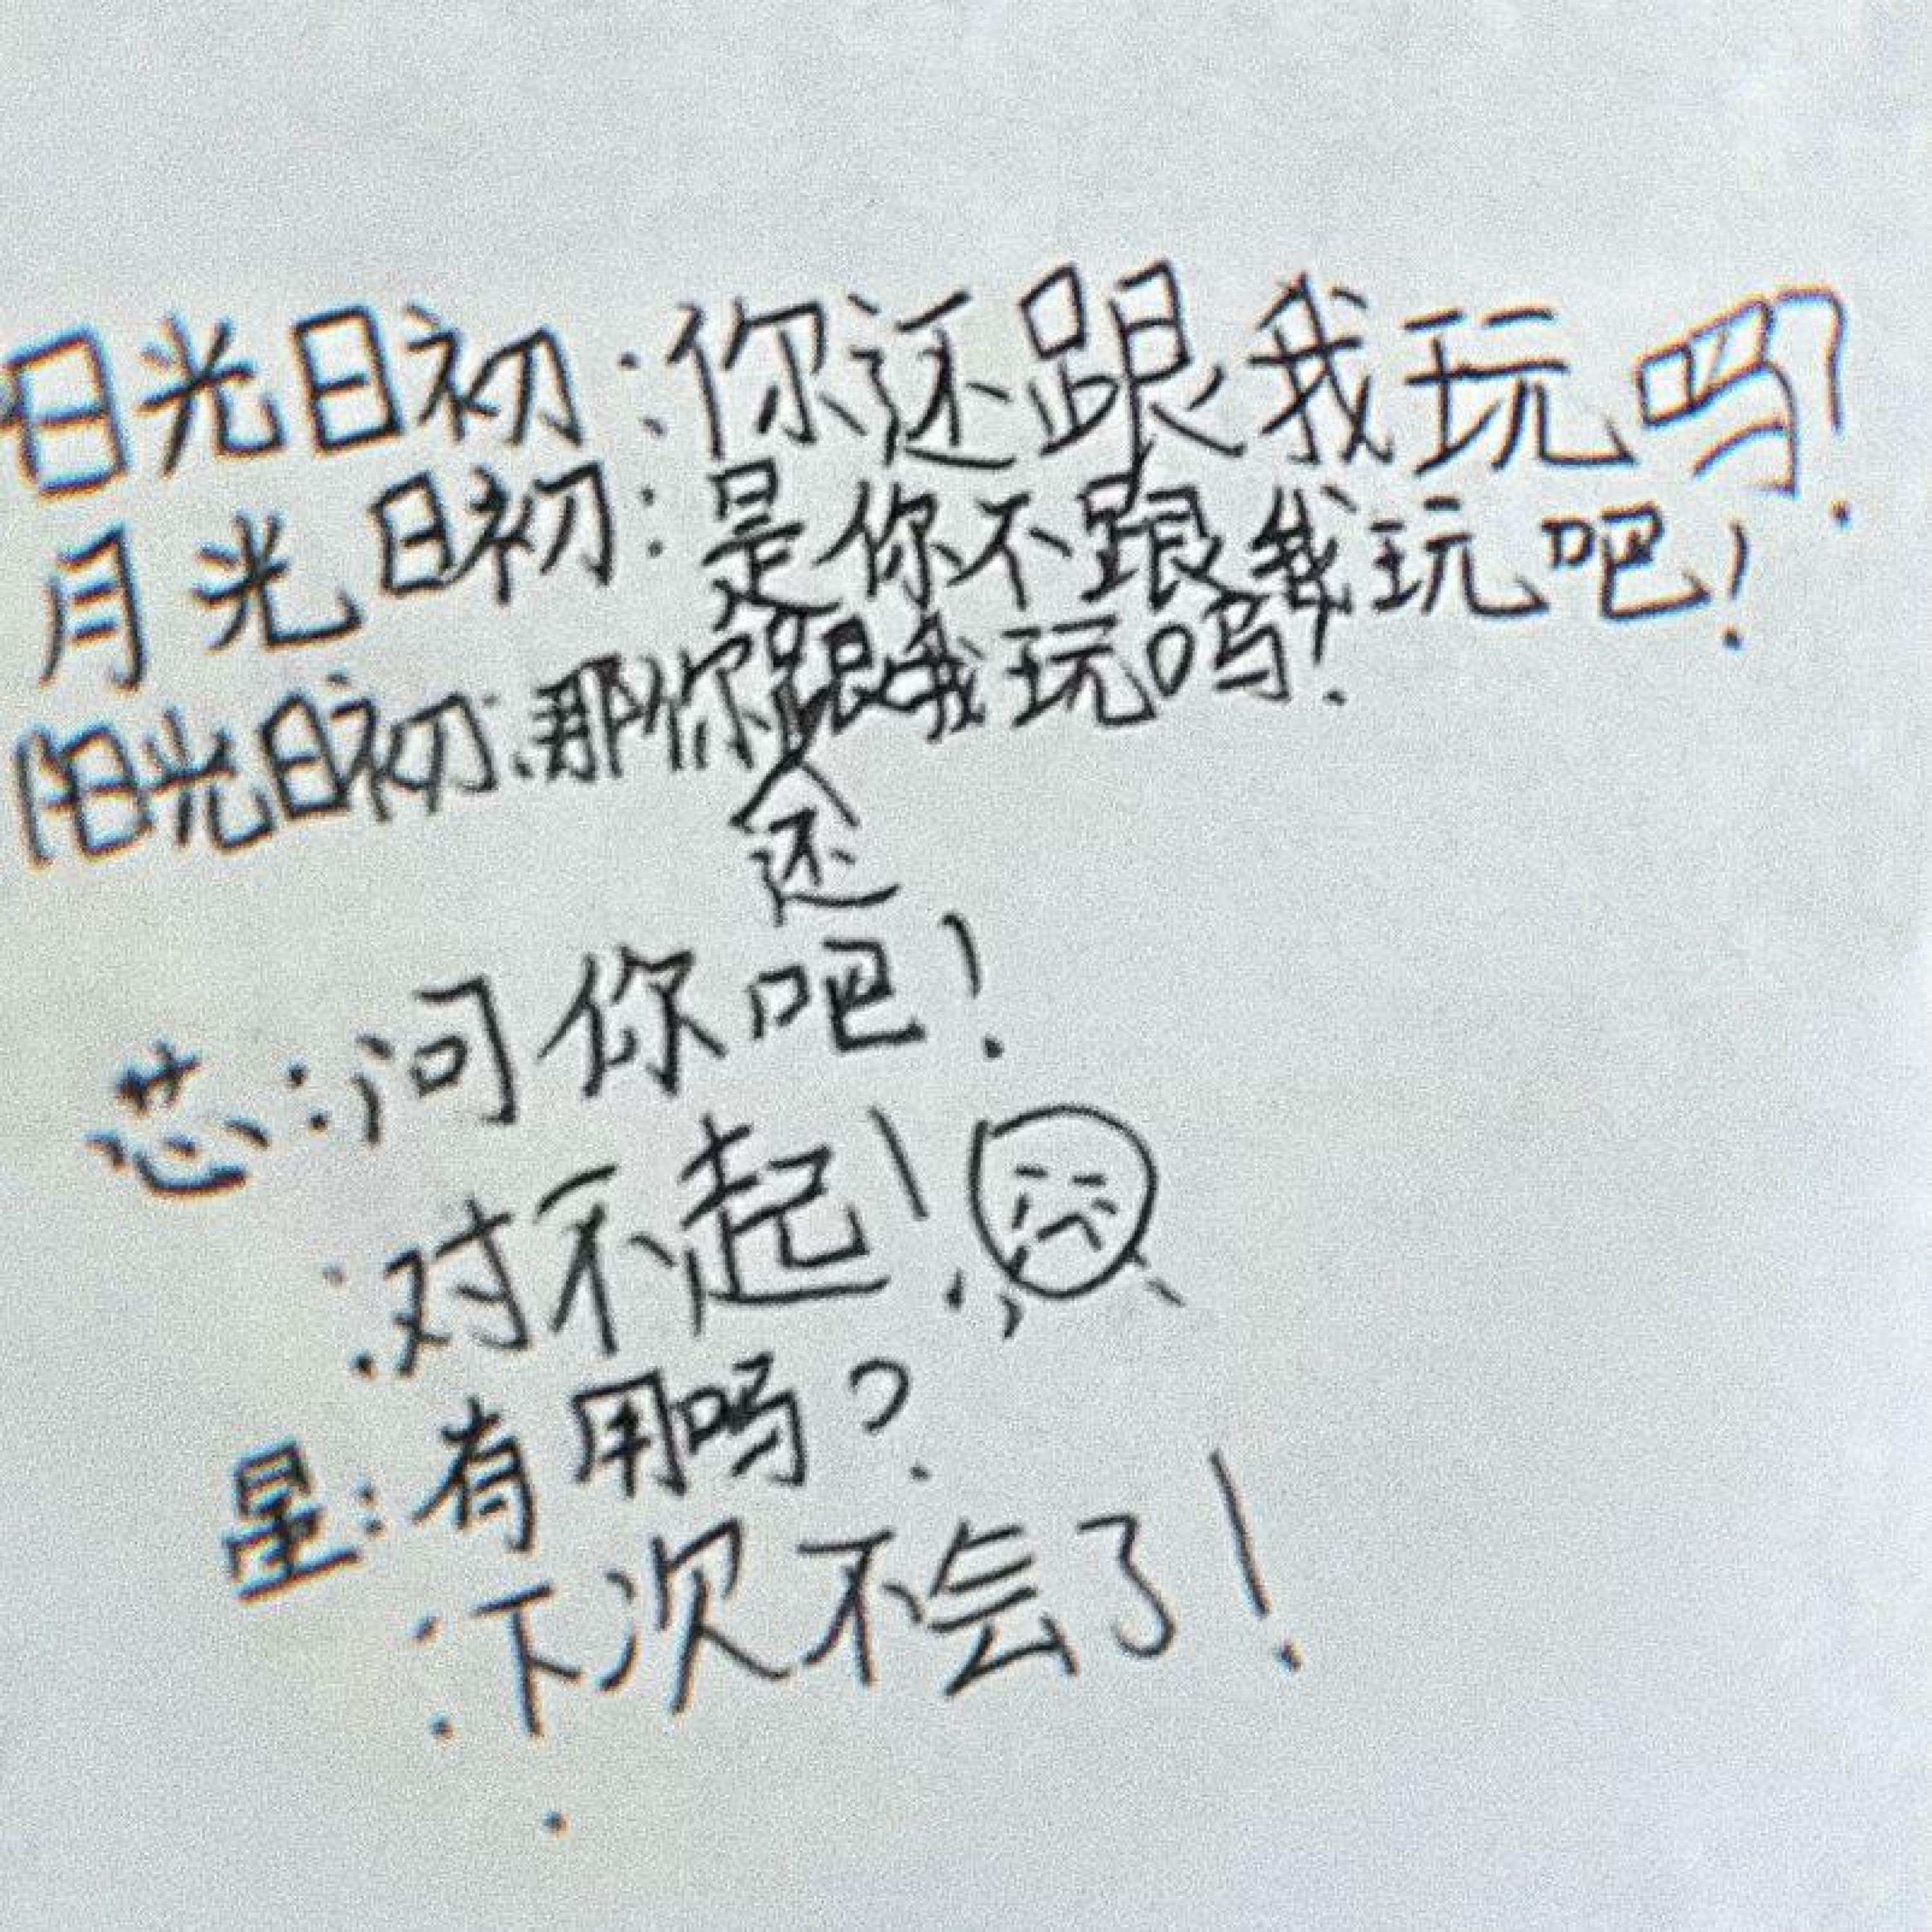 日光日初:你还跟我玩吗?
月光日初:是你不跟我玩吧!
阳光日初:那你还跟我玩吗!
芯:问你吧!
:对不起!
星:有用吗?
:下次不会了!